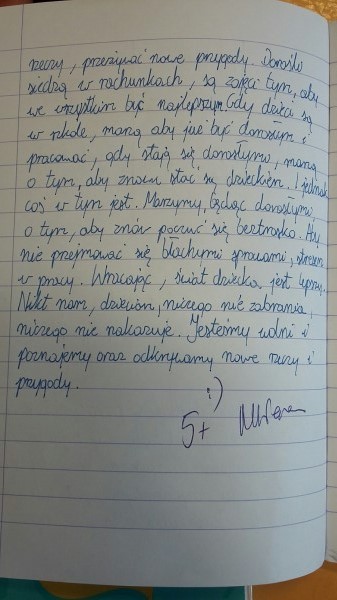 rzeczy, przeżywać nowe przygody. Dorośli
siedzą w rachunkach, są zajęci tym, aby
we wszystkim być najlepszym. Gdy dzieci są
w szkole, marzą aby już być dorosłym i
pracować, gdy stają się dorosłymi, marzą
o tym, aby znowu stać się dzieckiem. I jednak
coś w tym jest. Marzymy, będąc dorosłymi,
o tym, aby znów poczuć się beztrosko. Aby
nie przejmować się błachymi sprawami, stresem
w pracy. Wracając, świat dziecka jest lepszy.
Nikt nam, dzieciom, niczego nie zabrania,
niczego nie nakazuje. Jesteśmy wolni i
poznajemy oraz odkrywamy nowe rzeczy i
przygody.
:)
5+